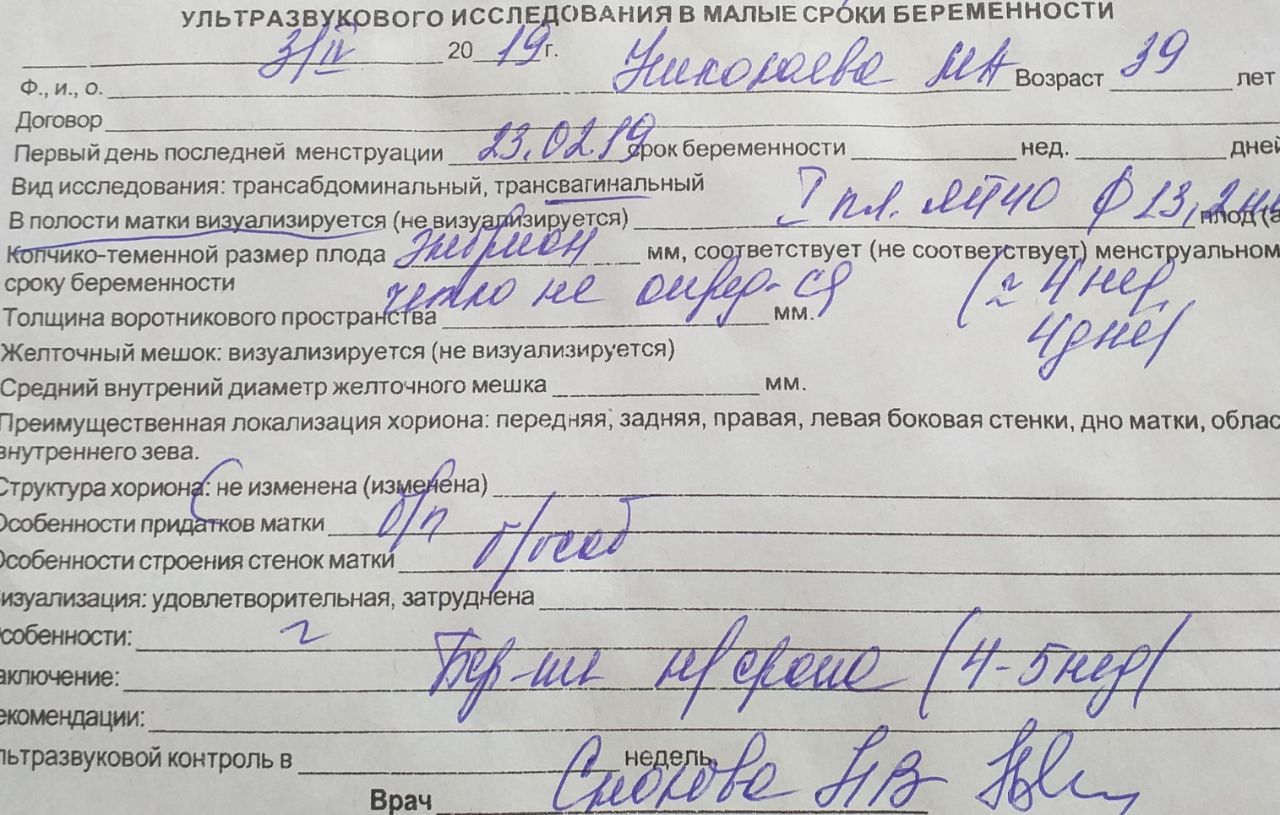 УЛЬТРАЗВУКОВОГО ИССЛЕДОВАНИЯ В МАЛЫЕ СРОКИ БЕРЕМЕННОСТИ
3/IV 2019г.
Ф., и., о. Николаева МА Возраст 39 лет
Договор
Первый день последней менструации 23.02 19 срок беременности нед. дней
Вид исследования: трансабдоминальный, трансвагинальный
В полости матки визуализируется (не визуализируется) I пл. яйцо ф 13,2мм плод (а
Копчико-теменной размер плода эмбрион мм, соответствует (не соответствует) менструальном
сроку беременности четко не опред-ся (≈ 4нед
Толщина воротникового пространства мм. 4дней)
Желточный мешок: визуализируется (не визуализируется)
Средний внутрений диаметр желточного мешка мм.
Преимущественная локализация хориона: передняя, задняя, правая, левая боковая стенки, дно матки, облас
внутреннего зева.
Структура хориона: не изменена (изменена)
Особенности придатков матки б/п
Особенности строения стенок матки б/особ
изуализация: удовлетворительная, затруднена
собенности:
аключение: Бер-ть м/срока (4-5нед)
екомендации:
льтразвуковой контроль в недель.
Врач НВ